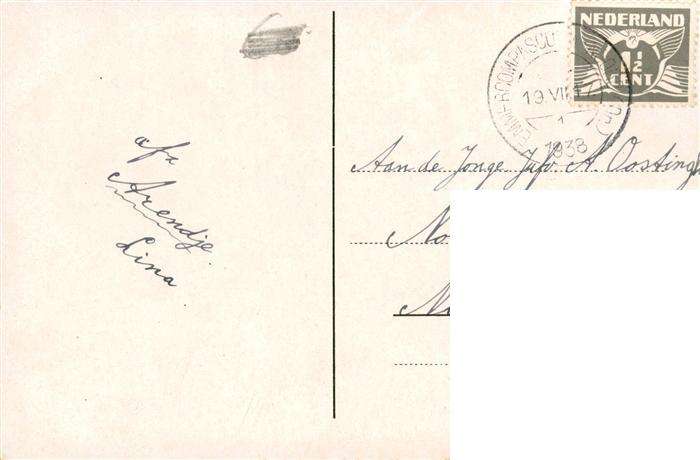 afz
Arendje
Lina
NEDERLAND
1½
CENT
EMMERCOMPASCU
19 VII 17
1
1938
Aan de Jonge Jufv A. Oosting
No